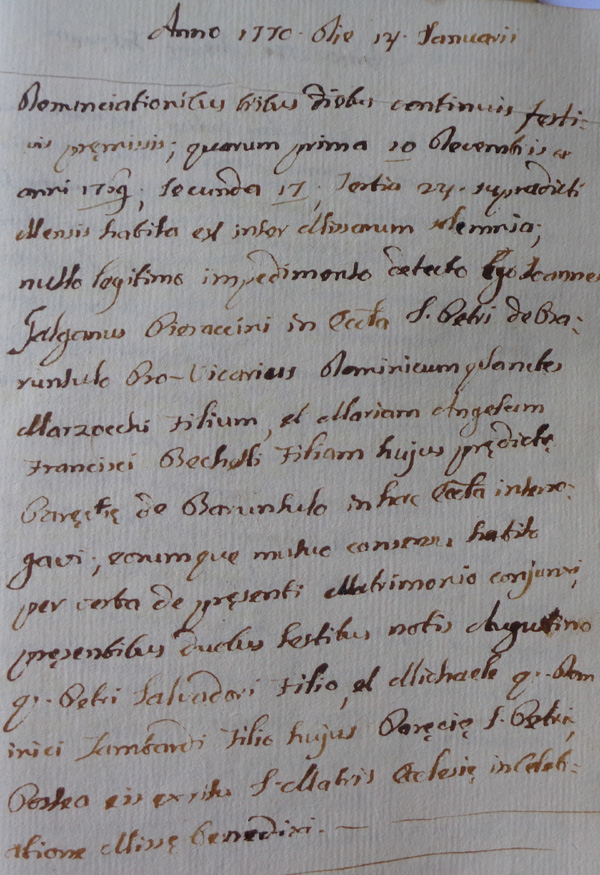 Anno 1770. Die 14. Januarii
Denunciationibus tribus diebus continuis festi-
vis pręmissis; quarum prima 10 Decembris
anni 1769, secunda 17, tertia 24. supradicti
Mensis habita est inter Missarum solemnia;
nullo legitimo impedimento detecto Ego Joannes
Galganus Pieraccini in Eccta S. Petri de Ba-
runtulo Pro-Vicarius Dominicum
Marzocchi Filium, et Mariam Angelam
Francisci Bechelli Filiam hujus prędictę
Paręcię de Baruntulo in hac Eccta interro-
gavi; eorumque mutuo consensu habito
per verba de pręsenti Matrimonio conjunxi,
pręsentibus duobus testibus notis Augustino
q. Petri Salvadori Filio, et Michaele q. Dom
inici Lambardi Filio hujus Paręcię S. Petri,
Postea eis ex ritu S. Matris Eclesię in Celeb-
ratione Missę benedixi.